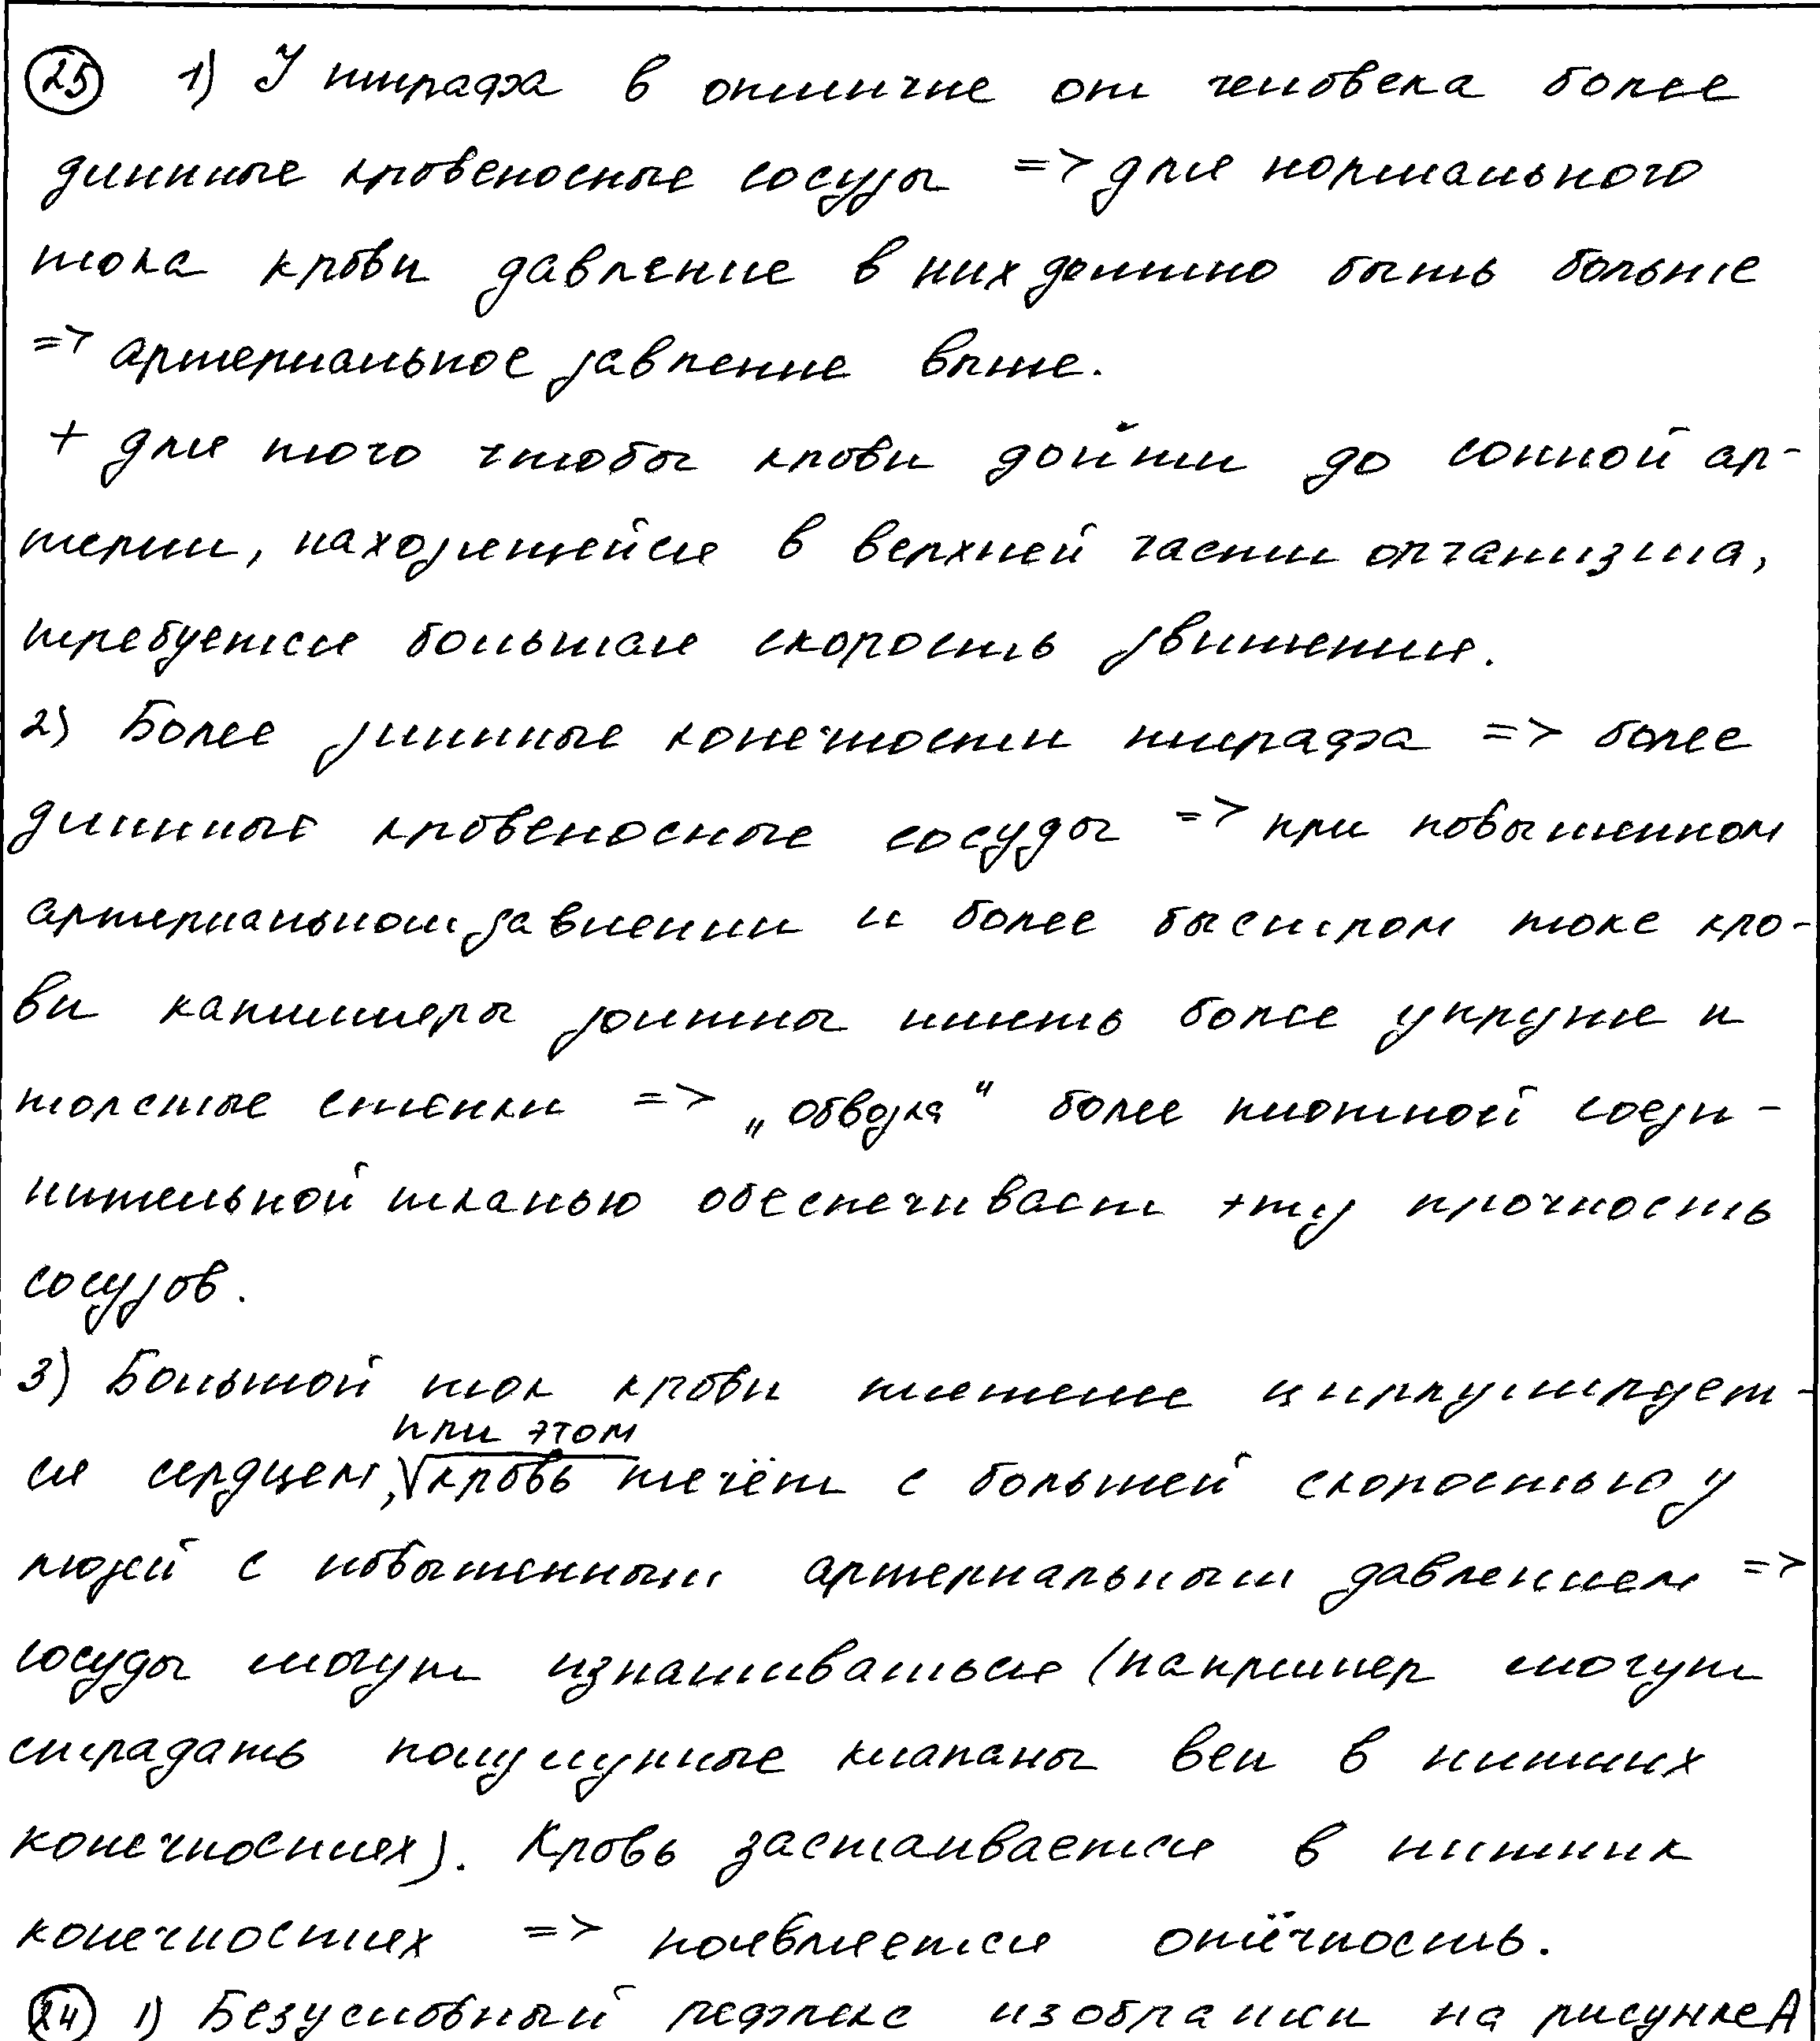 25 1) У жирафа в отличие от человека более
длинные кровеносные сосуды => для нормального
тока крови давление в них должно быть больше
=> артериальное давление выше.
+ для того чтобы крови дойти до сонной ар-
терии, находящейся в верхней части организма,
требуется большая скорость движения.
2) Более длинные конечности жирафа => более
длинные кровеносные сосуды => при повышенном
артериальном давлении и более быстром токе кро-
ви капилляры должны иметь более упругие и
толстые стенки => „обводка" более плотной соеди-
нительной тканью обеспечивает эту прочность
сосудов.
3) Большой ток крови тяжелее циркулирует-
ся сердцем, при этом кровь течёт с большей скоростью у
людей с повышенным артериальным давлением =>
сосуды могут изнашиваться (например могут
страдать полулунные клапаны вен в нижних
конечностях). Кровь застаивается в нижних
конечностях => появляется отёчность.
24 1) Безусловный рефлекс изображён на рисунке А